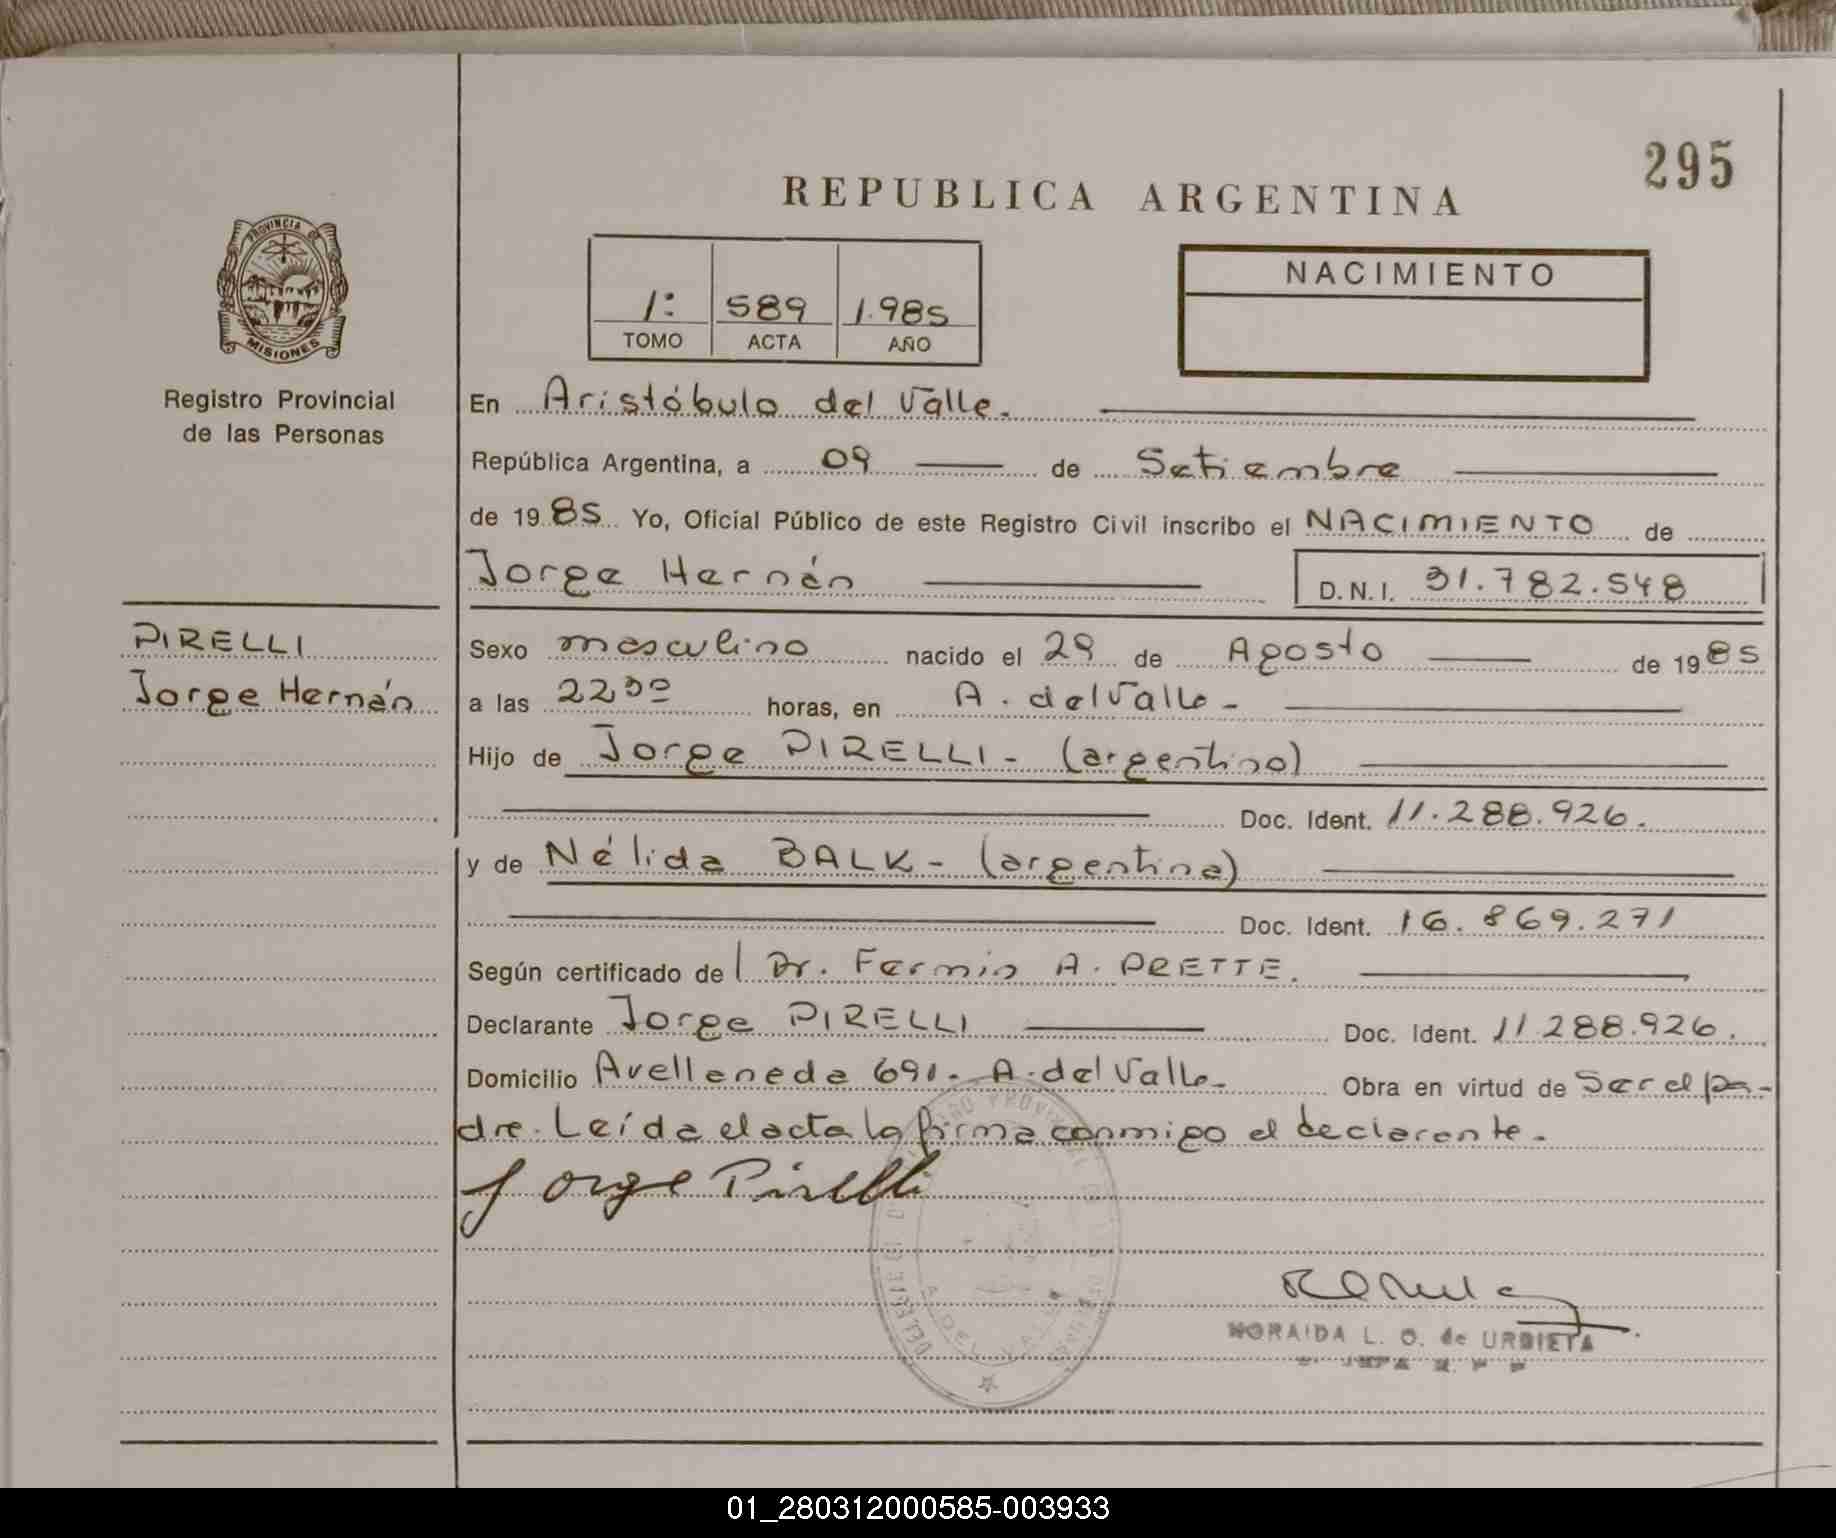 295
REPUBLICA ARGENTINA
PROVINCIA DE
MISIONES
Registro Provincial
de las Personas
1: 589 1.985
TOMO ACTA AÑO
NACIMIENTO
En Aristóbulo del Valle.
República Argentina, a 09 de Setiembre
de 1985 Yo, Oficial Público de este Registro Civil inscribo el NACIMIENTO de
Jorge Hernán D.N.I. 31.782.548
PIRELLI
Jorge Hernán
Sexo masculino nacido el 29 de Agosto de 1985
a las 22,30 horas, en A. del Valle-
Hijo de Jorge PIRELLI- (argentino)
Doc. Ident. 11.288.926.
y de Nélida BALK- (argentina)
Doc. Ident. 16.869.271
Según certificado de Dr. Fermin A. PRETTE.
Declarante Jorge PIRELLI Doc. Ident. 11.288.926.
Domicilio Avellaneda 691. A. del Valle- Obra en virtud de Ser el pa-
dre. Leída el acta la firma conmigo el declarante.
Jorge Pirelli
NORAIDA L. O. de URBIETA
A. DEL VALLE
01_280312000585-003933